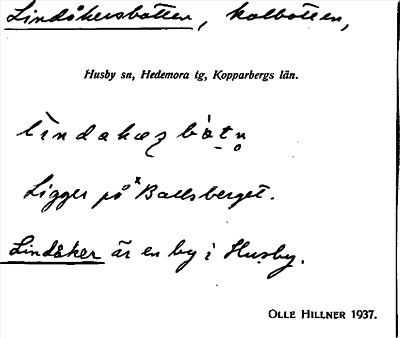 Lindåkersbotten, kolbotten,
Husby sn, Hedemora tg, Kopparbergs län.
Ligger på ×Ballsberget.
Lindåker är en by i Husby.
OLLE HILLNER 1937.